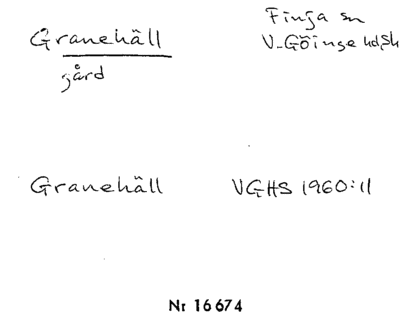 Granehäll
gård
Finja sn
V. Göinge hd, Sk
Granehäll VGHS 1960:11
Nr 16674